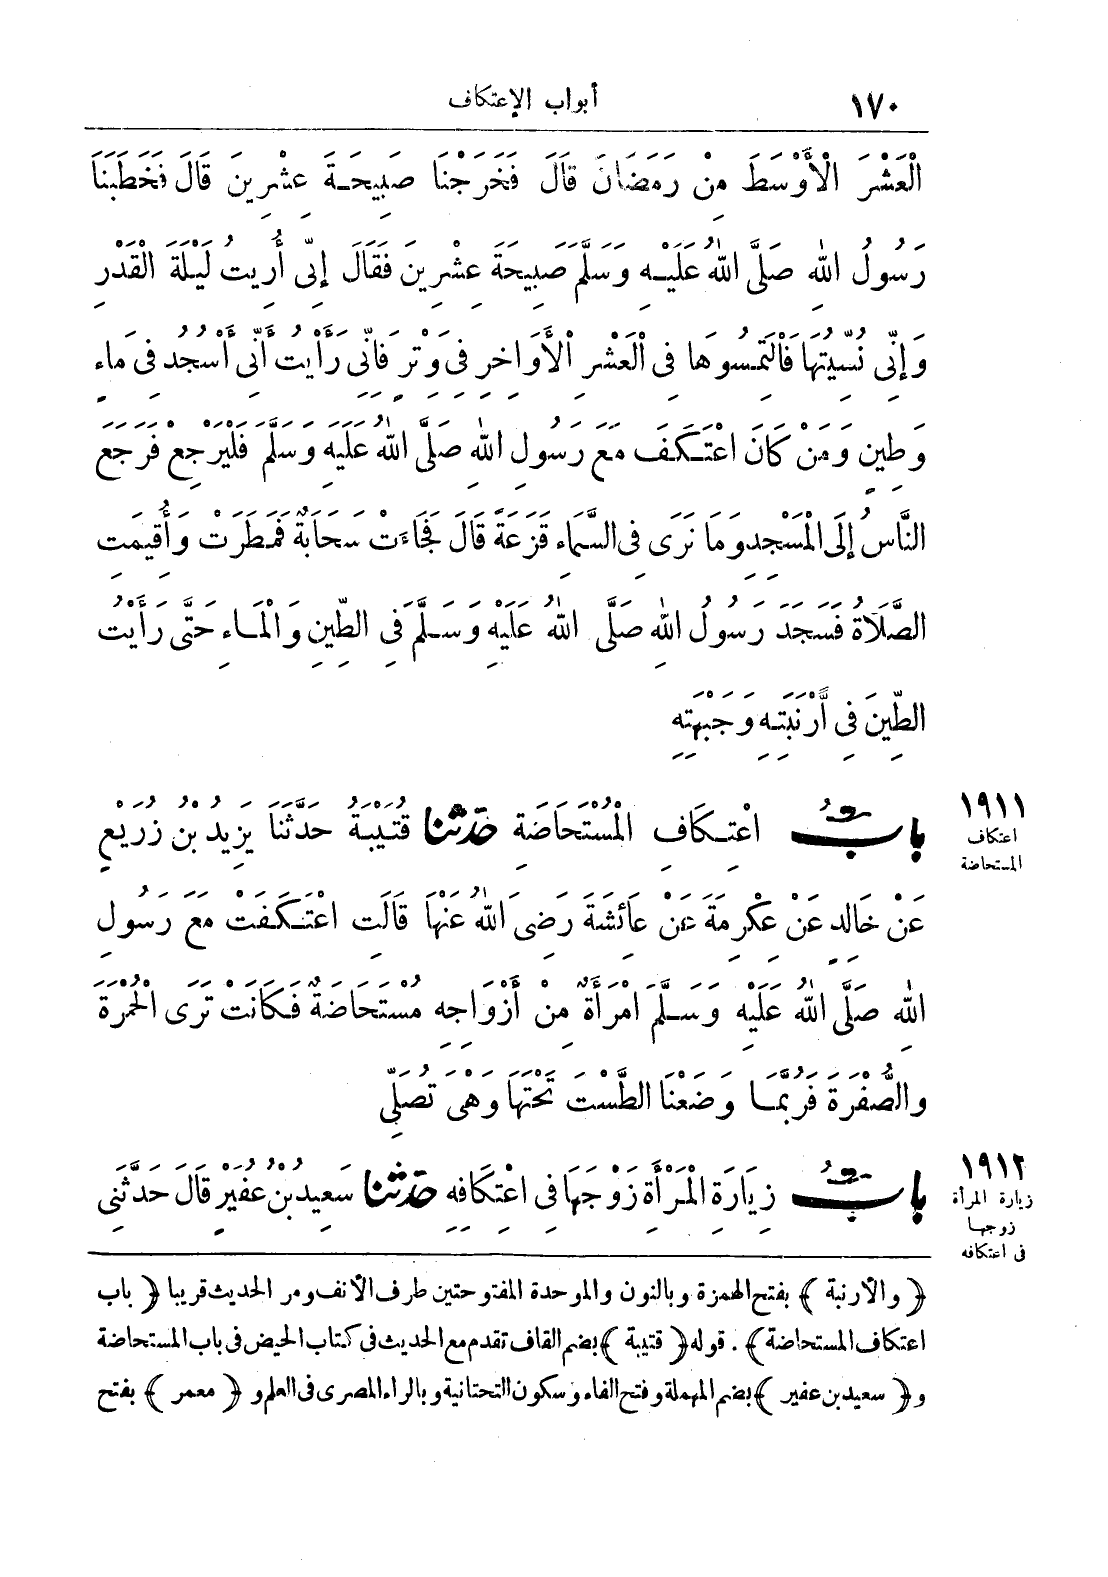 ١٧٠
أبواب الإعتكاف
الْعَشْرَ الْأَوْسَطَ مِنْ رَمَضَانَ قَالَ فَخَرَجْنَا صَبِيحَةَ عِشْرِينَ قَالَ فَخَطَبَنَا
رَسُولُ اللهِ صَلَّى اللهُ عَلَيْهِ وَسَلَّمَ صَبِيحَةَ عِشْرِينَ فَقَالَ إِنِّى أُرِيتُ لَيْلَةَ الْقَدْرِ
وَإِنِّى نُسِّيتُهَا فَالْتَمِسُوهَا فِى الْعَشْرِ الْأَوَاخِرِ فِى وَتْرٍ فَإِنِّى رَأَيْتُ أَنِّى أَسْجُدُ فِى مَاءٍ
وَطِينٍ وَمَنْ كَانَ اعْتَكَفَ مَعَ رَسُولِ اللهِ صَلَّى اللهُ عَلَيْهِ وَسَلَّمَ فَلْيَرْجِعْ فَرَجَعَ
النَّاسُ إِلَى الْمَسْجِدِ وَمَا نَرَى فِى السَّمَاءِ قَزَعَةً قَالَ فَجَاءَتْ سَحَابَةٌ فَمَطَرَتْ وَأُقِيمَتِ
الصَّلَاةُ فَسَجَدَ رَسُولُ اللهِ صَلَّى اللهُ عَلَيْهِ وَسَلَّمَ فِى الطِّينِ وَالْمَاءِ حَتَّى رَأَيْتُ
الطِّينَ فِى أَرْنَبَتِهِ وَجَبْهَتِهِ
١٩١١
اعتكاف
المستحاضة
بابُ اعْتِكَافِ الْمُسْتَحَاضَةِ حَدَّثَنَا قُتَيْبَةُ حَدَّثَنَا يَزِيدُ بْنُ زُرَيْعٍ
عَنْ خَالِدٍ عَنْ عِكْرِمَةَ عَنْ عَائِشَةَ رَضِىَ اللهُ عَنْهَا قَالَتِ اعْتَكَفَتْ مَعَ رَسُولِ
اللهِ صَلَّى اللهُ عَلَيْهِ وَسَلَّمَ امْرَأَةٌ مِنْ أَزْوَاجِهِ مُسْتَحَاضَةٌ فَكَانَتْ تَرَى الْحُمْرَةَ
وَالصُّفْرَةَ فَرُبَّمَا وَضَعْنَا الطَّسْتَ تَحْتَهَا وَهْىَ تُصَلِّى
١٩١٢
زيارة المرأة
زوجها
فى اعتكافه
بابُ زِيَارَةِ الْمَرْأَةِ زَوْجَهَا فِى اعْتِكَافِهِ حَدَّثَنَا سَعِيدُ بْنُ عُفَيْرٍ قَالَ حَدَّثَنِى
﴿والأرنبة﴾ بفتح الهمزة وبالنون والموحدة المفتوحتين طرف الأنف ومر الحديث قريبا ﴿باب
اعتكاف المستحاضة﴾. قوله ﴿قتيبة﴾ بضم القاف تقدم مع الحديث فى كتاب الحيض فى باب المستحاضة
و﴿سعيد بن عفير﴾ بضم المهملة وفتح الفاء وسكون التحتانية وبالراء المصرى فى العلم و﴿معمر﴾ بفتح